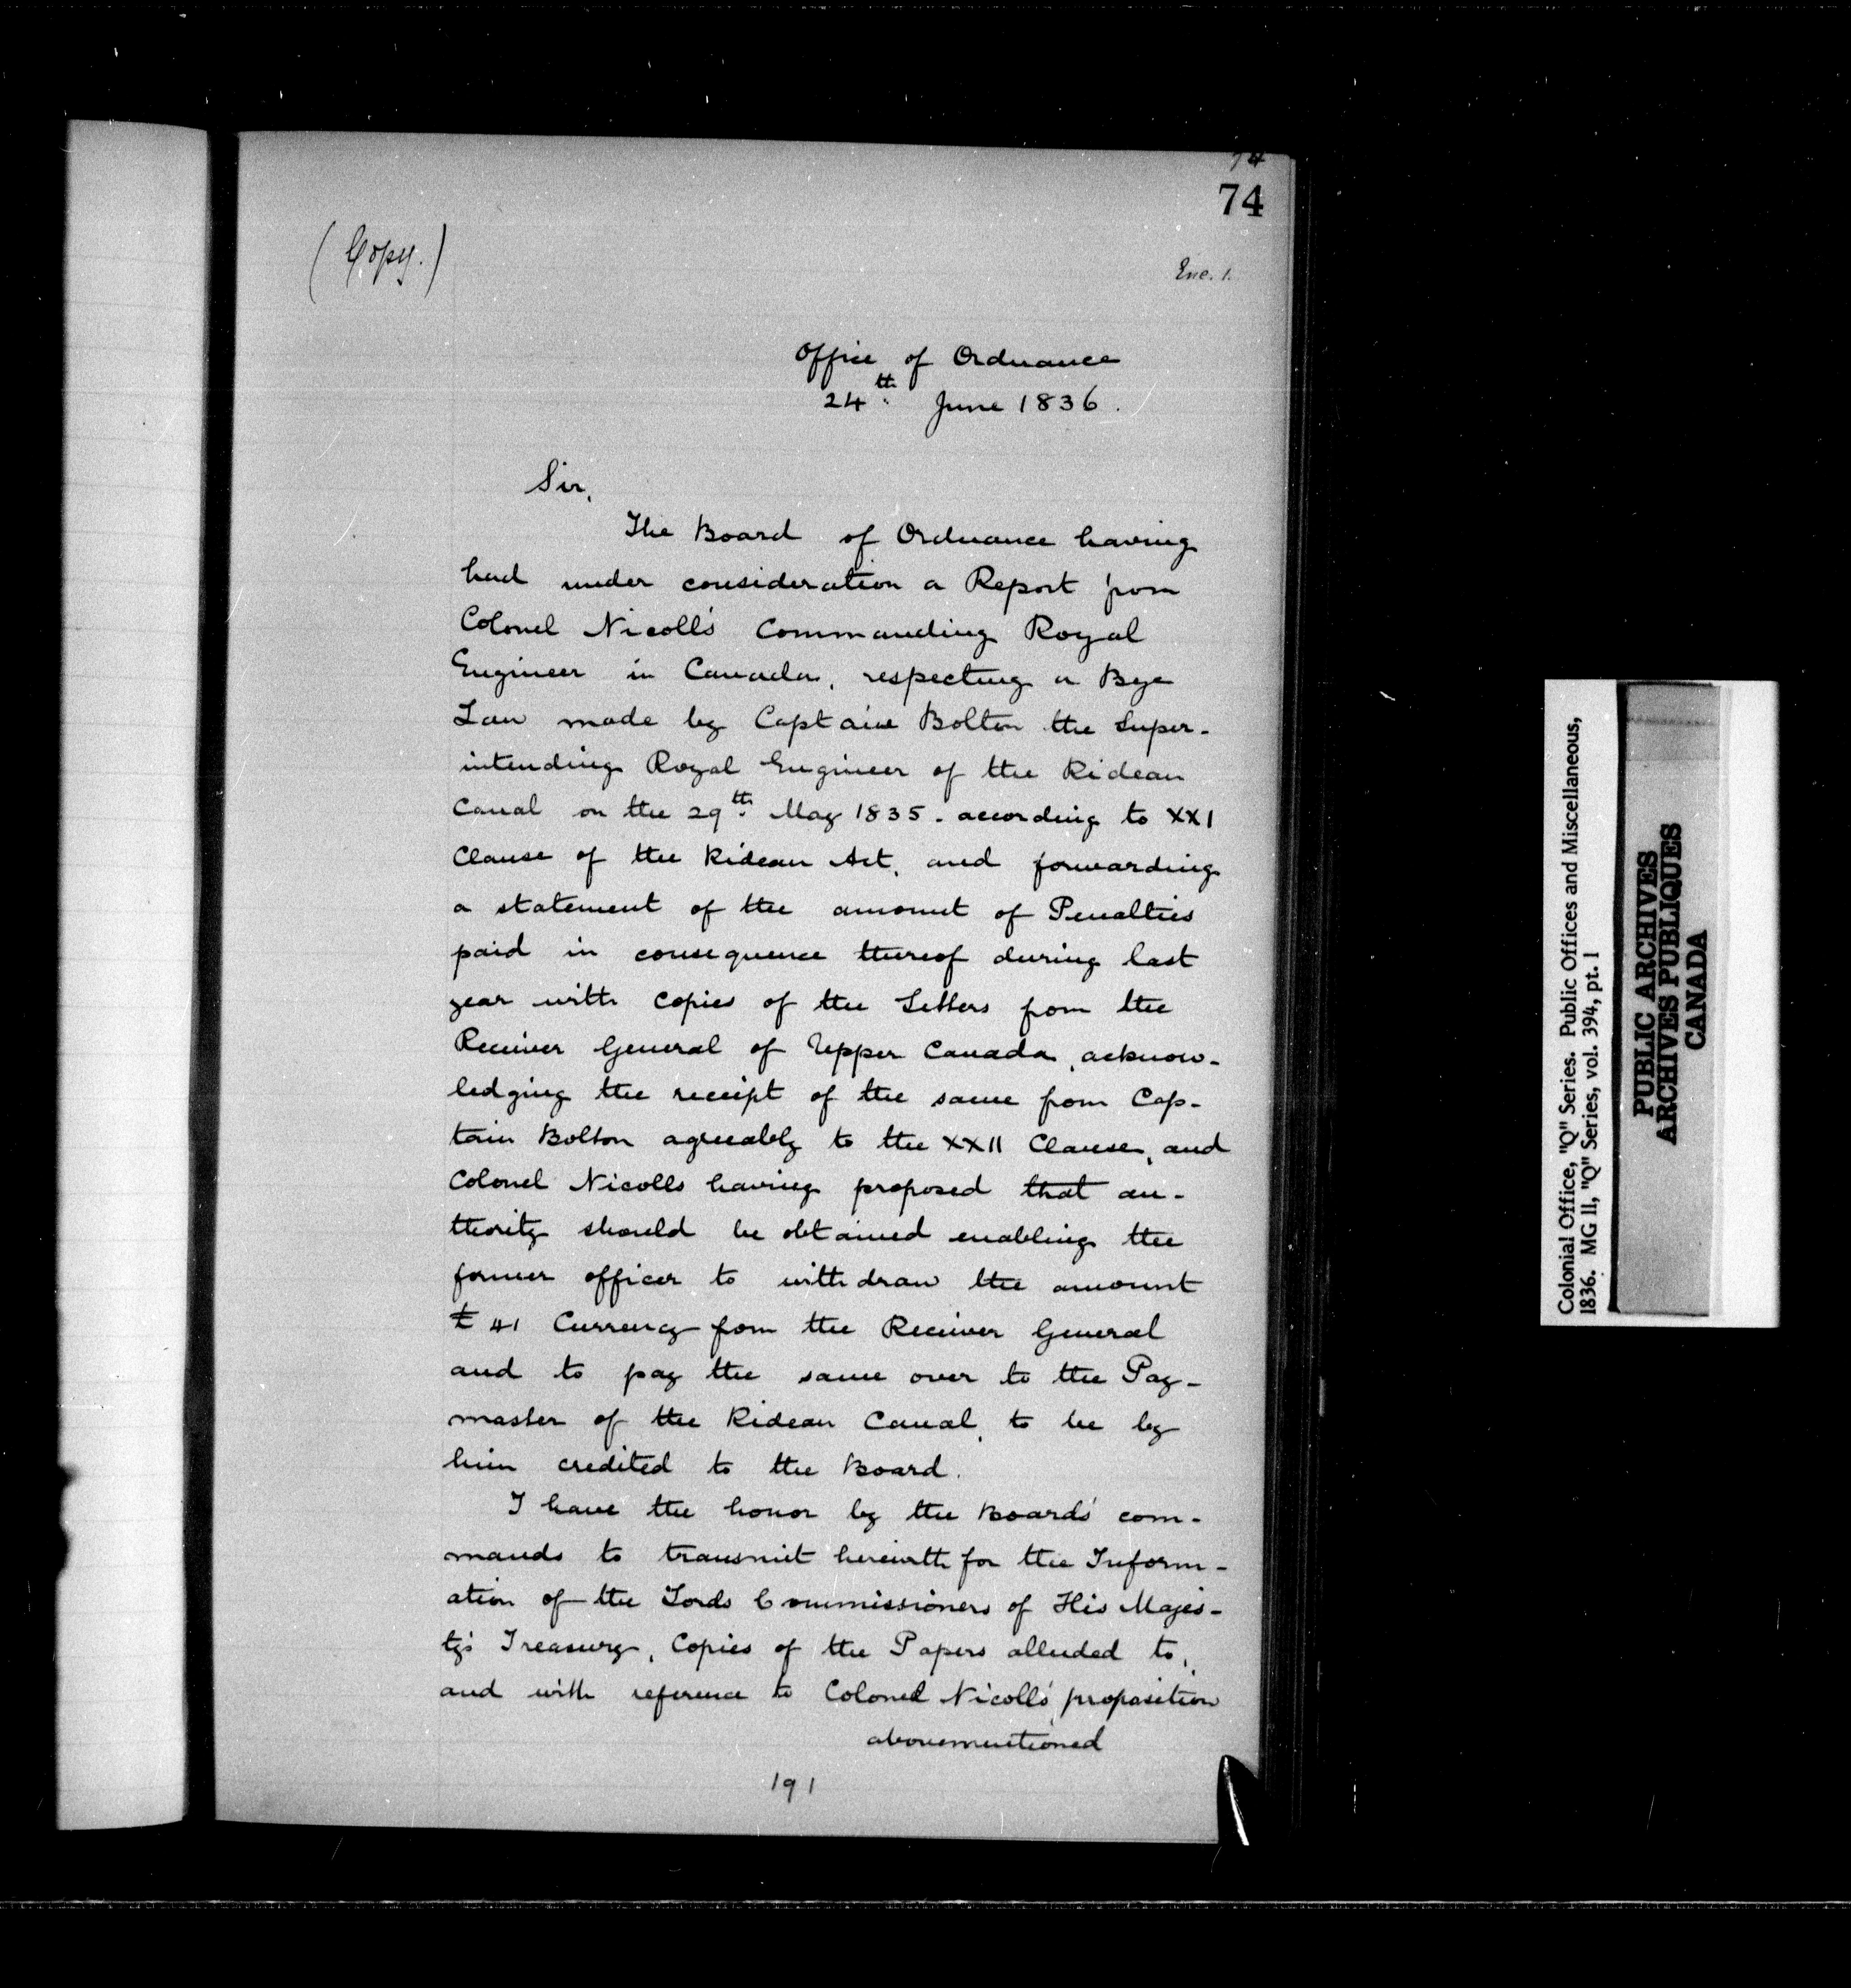 74
74
(Copy.)
Enc. 1.
Office of Ordnance
24th June 1836.
Sir,
The Board of Ordnance having
had under consideration a Report from
Colonel Nicoll's Commanding Royal
Engineer in Canada, respecting a Bye
Law made by Captain Bolton the Super-
intending Royal Engineer of the Rideau
Canal on the 29th May 1835. according to XXI
Clause of the Rideau Act, and forwarding
a statement of the amount of Penalties
paid in consequence thereof during last
year with copies of the Letters from the
Receiver General of Upper Canada, acknow-
ledging the receipt of the same from Cap-
tain Bolton agreeably to the XXII Clause, and
Colonel Nicolls having proposed that au-
thority should be obtained enabling the
former officer to withdraw the amount
£41 Currency from the Receiver General
and to pay the same over to the Pay-
master of the Rideau Canal, to be by
him credited to the Board.
I have the honor by the Board's com-
mands to transmit herewith for the Inform-
ation of the Lords Commissioners of His Majes-
ty's Treasury, Copies of the Papers alluded to,
and with reference to Colonel Nicoll's proposition
abovementioned
191
Colonial Office, "Q" Series. Public Offices and Miscellaneous,
1836. MG 11, "Q" Series, vol. 394, pt. 1
PUBLIC ARCHIVES
ARCHIVES PUBLIQUES
CANADA